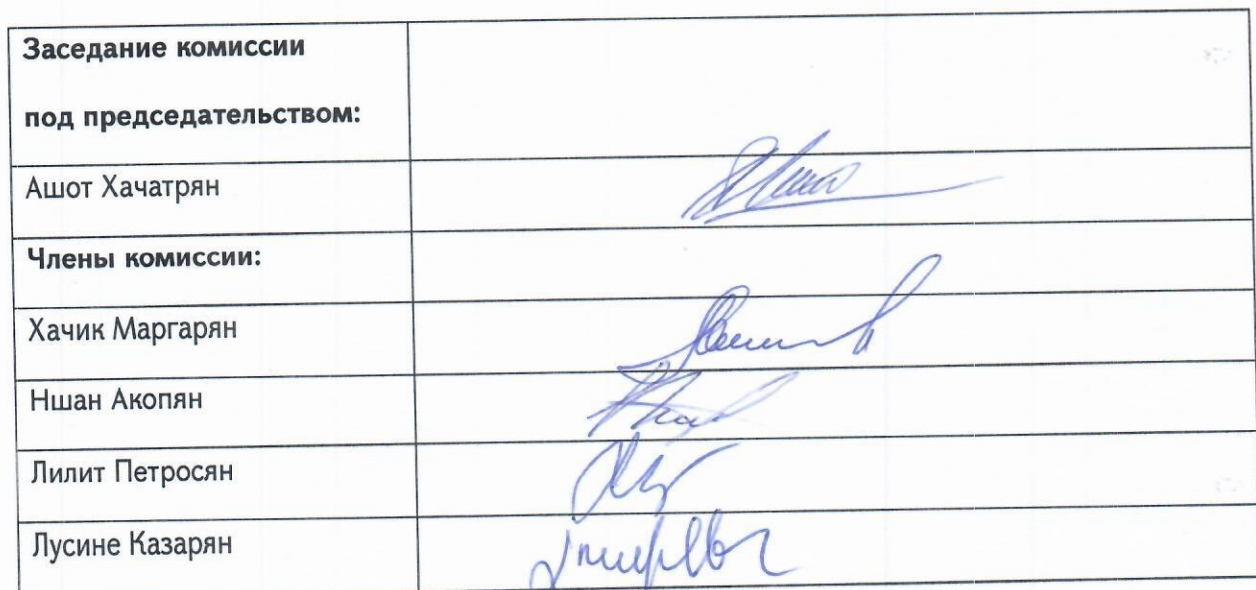 Заседание комиссии
под председательством:
Ашот Хачатрян
Члены комиссии:
Хачик Маргарян
Ншан Акопян
Лилит Петросян
Лусине Казарян